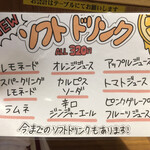 会計はテーブルにてお願い
NEW
ソフトドリンク
ALL 320円
レモネード オレンジジュース アップルジュース
スパークリングレモネード カルピスソーダ トマトジュース
ラムネ 辛口ジンジャーエール ピンクグレープフルーツジュース
今までのソフトドリンクもあります!